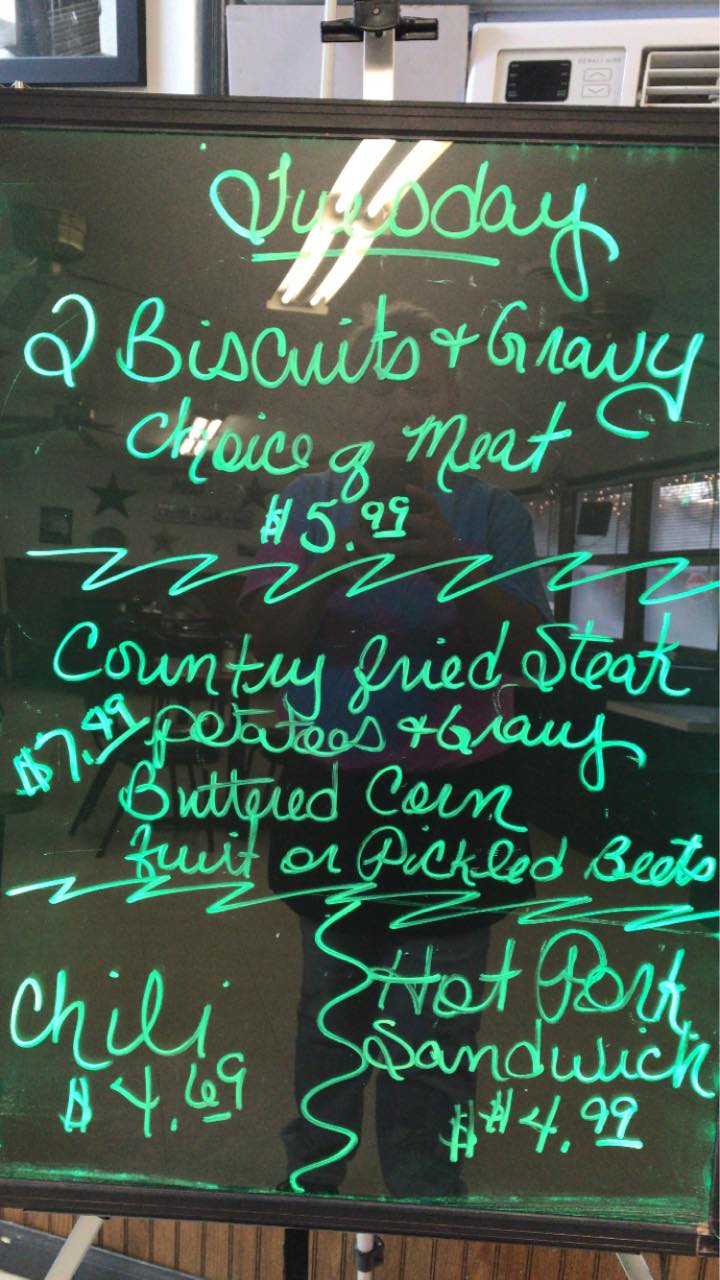 Tuesday
2 Biscuits + Gravy
Choice of Meat
$5.99
Country fried Steak
$7.49 potatoes + Gravy
Buttered Corn
fruit or Pickled Beets
Chili
$4.69
Hot Pork
Sandwich
$4.99